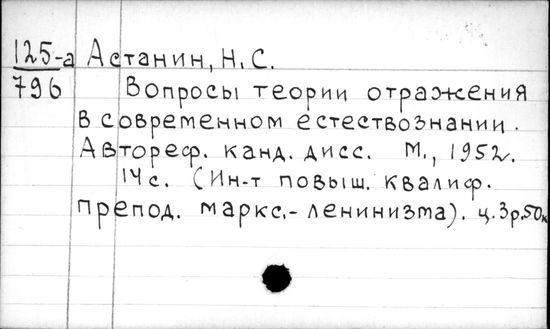 125-а Астанин, Н.С.
796 Вопросы теории отражения
в современном естествознании.
Автореф. канд. дисс. М., 1952.
14с. (Ин-т повыш. квалиф.
препод. маркс.-ленинизма). ц.3р.50к